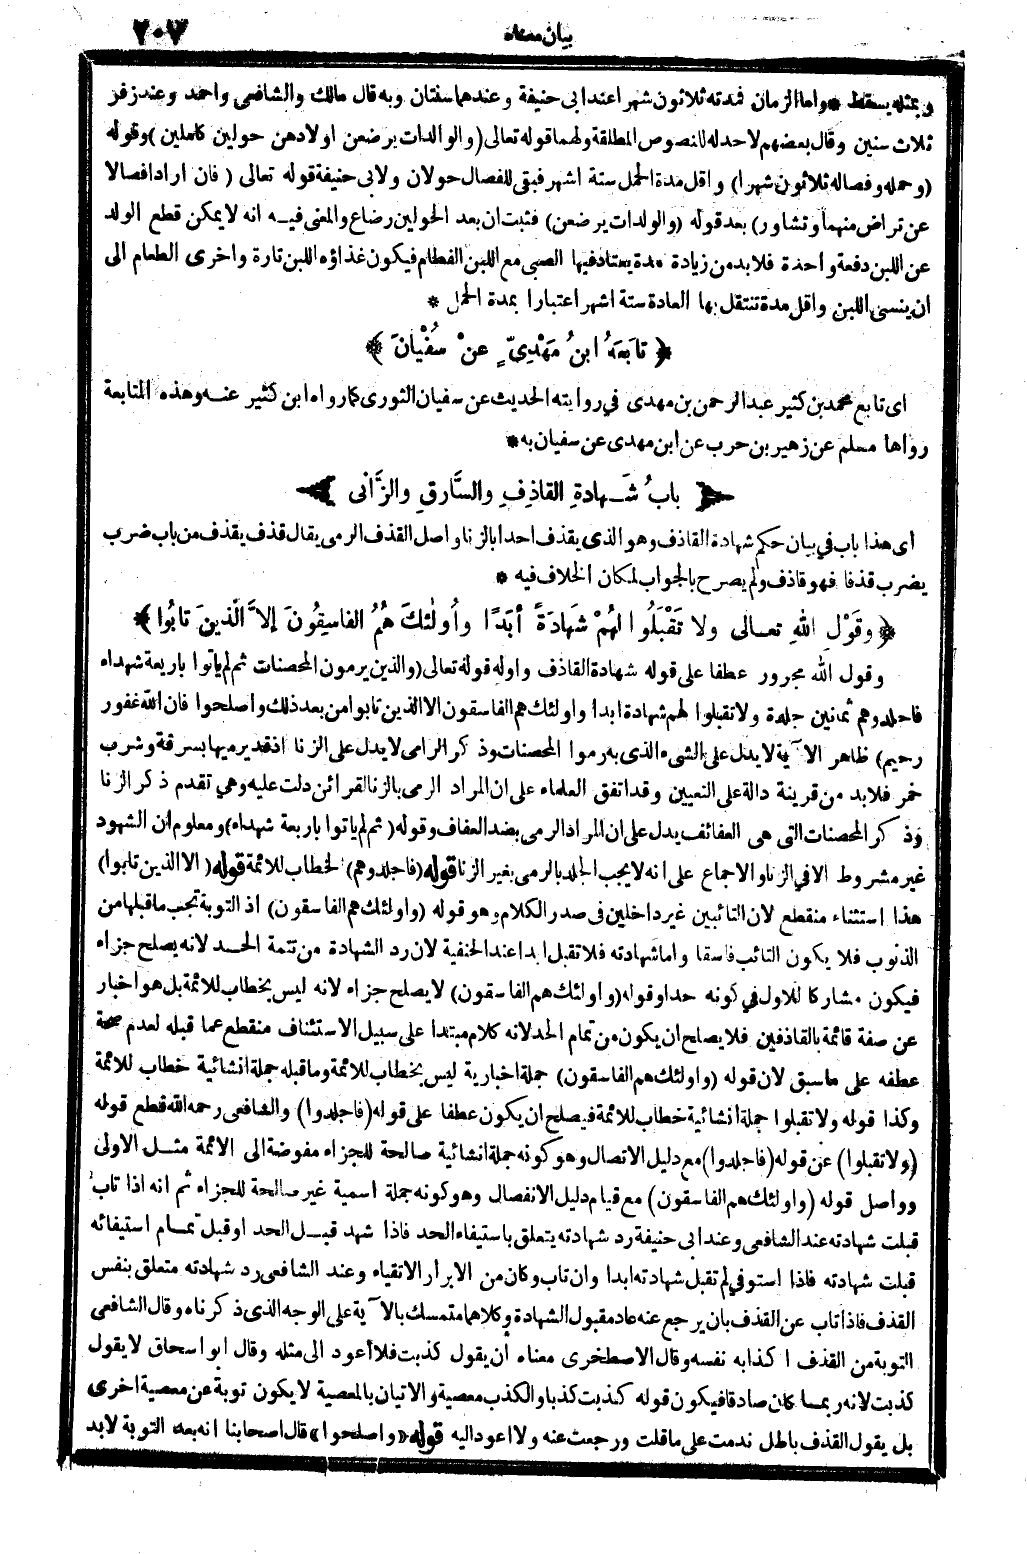 بيان معناه ٢٠٧
وبمثله يسقط * واما الزمان فمدته ثلاثون شهرا عند ابى حنيفة وعندهما سنتان وبه قال مالك والشافعى واحمد وعند زفر
ثلاث سنين وقال بعضهم لا حد له للنصوص المطلقة ولهما قوله تعالى (والوالدات يرضعن اولادهن حولين كاملين) وقوله
(وحمله وفصاله ثلاثون شهرا) واقل مدة الحمل ستة اشهر فبقى للفصال حولان ولابى حنيفة قوله تعالى (فان ارادا فصالا
عن تراض منهما وتشاور) بعد قوله (والوالدات يرضعن) فثبت ان بعد الحولين رضاع والمعنى فيه انه لا يمكن قطع الولد
عن اللبن دفعة واحدة فلا بد من زيادة مدة يعتاد فيها الصبى مع اللبن الفطام فيكون غذاؤه اللبن تارة واخرى الطعام الى
ان ينسى اللبن واقل مدة تنتقل بها العادة ستة اشهر اعتبارا بمدة الحمل *
﴿ تابَعَهُ ابنُ مَهْدِىٍّ عنْ سُفْيانَ ﴾
اى تابع محمد بن كثير عبد الرحمن بن مهدى في روايته الحديث عن سفيان الثورى كما رواه ابن كثير عنه وهذه المتابعة
رواها مسلم عن زهير بن حرب عن ابن مهدى عن سفيان به *
باب شَهادةِ القاذِفِ والسَّارقِ والزَّانى
اى هذا باب في بيان حكم شهادة القاذف وهو الذى يقذف احدا بالزنا واصل القذف الرمى يقال قذف يقذف من باب ضرب
يضرب قذفا فهو قاذف ولم يصرح بالجواب لمكان الخلاف فيه *
﴿ وقَوْلِ اللهِ تعالى ولا تَقْبَلُوا لهُمْ شَهادَةً أبَدًا وأُولئكَ هُمُ الفاسِقُونَ إلاَّ الَّذينَ تابُوا ﴾
وقول الله مجرور عطفا على قوله شهادة القاذف واوله قوله تعالى (والذين يرمون المحصنات ثم لم ياتوا باربعة شهداء
فاجلدوهم ثمانين جلدة ولا تقبلوا لهم شهادة ابدا واولئك هم الفاسقون الا الذين تابوا من بعد ذلك واصلحوا فان الله غفور
رحيم) ظاهر الآية لا يدل على الشىء الذى به رموا المحصنات وذكر الرامى لا يدل على الزنا اذ قد يرميها بسرقة وشرب
خمر فلا بد من قرينة دالة على التعيين وقد اتفق العلماء على ان المراد الرمى بالزنا لقرائن دلت عليه وهي تقدم ذكر الزنا
وذكر المحصنات التى هى العفائف يدل على ان المراد الرمى بضد العفاف وقوله (ثم لم ياتوا باربعة شهداء) ومعلوم ان الشهود
غير مشروط الا في الزنا والاجماع على انه لا يجب الجلد بالرمى بغير الزنا قوله (فاجلدوهم) الخطاب للائمة قوله (الا الذين تابوا)
هذا استثناء منقطع لان التائبين غير داخلين فى صدر الكلام وهو قوله (واولئك هم الفاسقون) اذ التوبة تجب ماقبلها من
الذنوب فلا يكون التائب فاسقا واما شهادته فلا تقبل ابدا عند الحنفية لان رد الشهادة من تتمة الحد لانه يصلح جزاء
فيكون مشاركا للاول في كونه حدا وقوله (واولئك هم الفاسقون) لا يصلح جزاء لانه ليس بخطاب للائمة بل هو اخبار
عن صفة قائمة بالقاذفين فلا يصلح ان يكون من تمام الحد لانه كلام مبتدا على سبيل الاستئناف منقطع عما قبله لعدم صحة
عطفه على ماسبق لان قوله (واولئك هم الفاسقون) جملة اخبارية ليس بخطاب للائمة وماقبله جملة انشائية خطاب للائمة
وكذا قوله ولا تقبلوا جملة انشائية خطاب للائمة فيصلح ان يكون عطفا على قوله (فاجلدوا) والشافعى رحمه الله قطع قوله
(ولا تقبلوا) عن قوله (فاجلدوا) مع دليل الاتصال وهو كونه جملة انشائية صالحة للجزاء مفوضة الى الائمة مثل الاولى
وواصل قوله (واولئك هم الفاسقون) مع قيام دليل الانفصال وهو كونه جملة اسمية غير صالحة للجزاء ثم انه اذا تاب
قبلت شهادته عند الشافعى وعند ابى حنيفة رد شهادته يتعلق باستيفاء الحد فاذا شهد قبل الحد او قبل تمام استيفائه
قبلت شهادته فاذا استوفي لم تقبل شهادته ابدا وان تاب وكان من الابرار الاتقياء وعند الشافعى رد شهادته متعلق بنفس
القذف فاذا تاب عن القذف بان يرجع عنه عاد مقبول الشهادة وكلاهما متمسك بالآية على الوجه الذى ذكرناه وقال الشافعى
التوبة من القذف اكذابه نفسه وقال الاصطخرى معناه ان يقول كذبت فلا أعود الى مثله وقال ابو اسحاق لا يقول
كذبت لانه ربما كان صادقا فيكون قوله كذبت كذبا والكذب معصية والاتيان بالمعصية لا يكون توبة عن معصية اخرى
بل يقول القذف باطل ندمت على ماقلت ورجعت عنه ولا اعود اليه قوله «واصلحوا» قال اصحابنا انه بعد التوبة لا بد